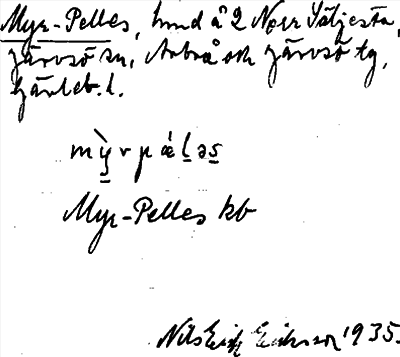 Myr-Pelles, hmd å 2 Norr Sätjesta,
Järvsö sn, Arbrå och Järvsö tg,
Gävleb. l.
mỳrpä́ləs
Myr-Pelles kb
Nils Erik Eriksson 1935.